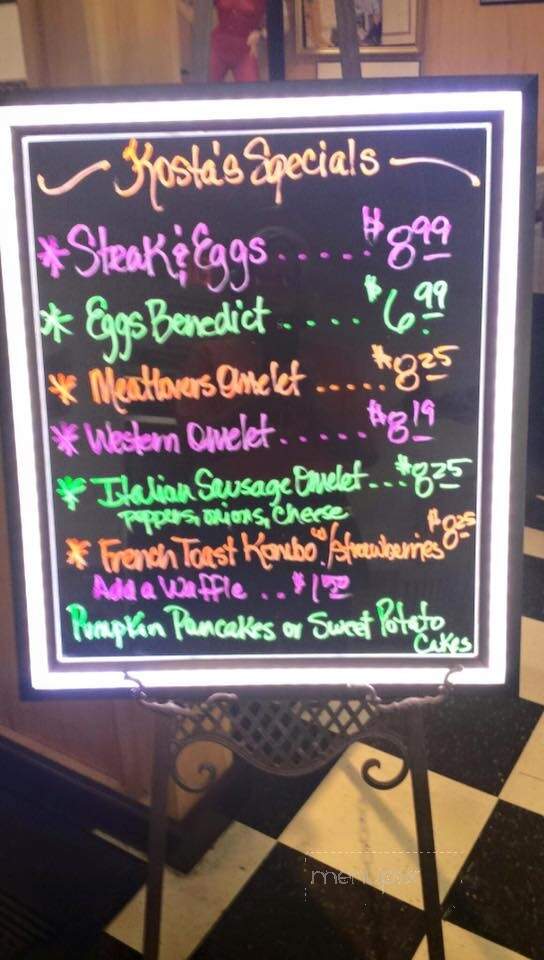 Kosta's Specials
* Steak & Eggs ...... $8.99
* Eggs Benedict .... $6.99
* Meatlovers Omelet ..... $8.25
* Western Omelet ...... $8.19
* Italian Sausage Omelet... $8.25
Peppers, onions, cheese
* French Toast Kombo w/strawberries $8.25
Add a Waffle .. $1.50
Pumpkin Pancakes or Sweet Potato
Cakes